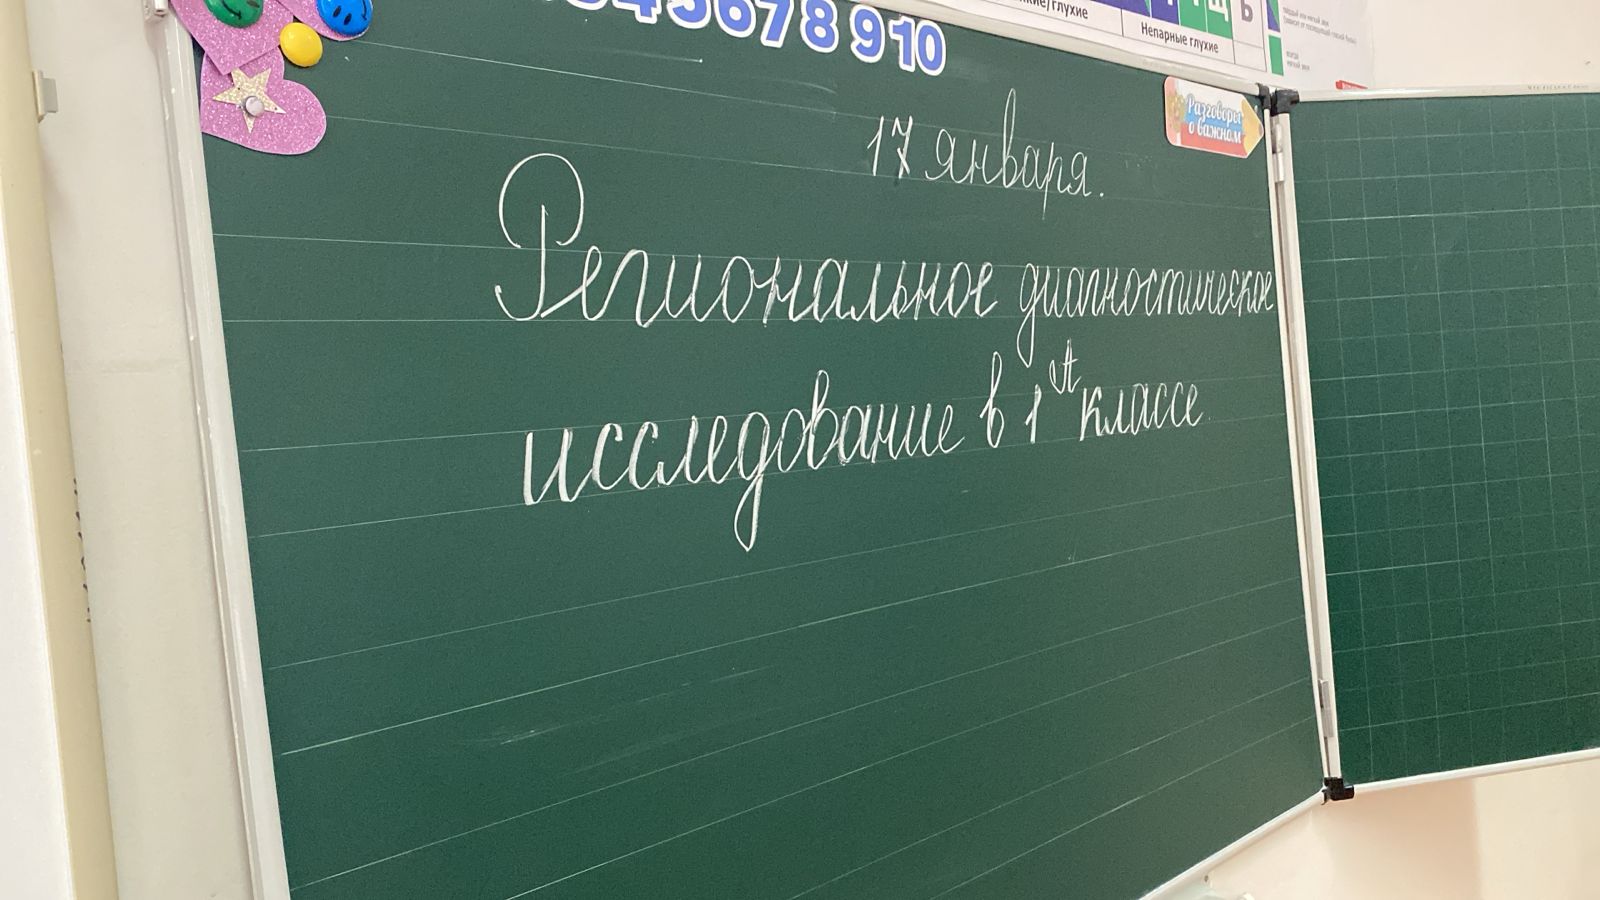 5678910
кие/глухие
Непарные глухие
Щ
Ь
Разговоры
о важном
17 января.
Региональное диагностическое
исследование в 1А классе